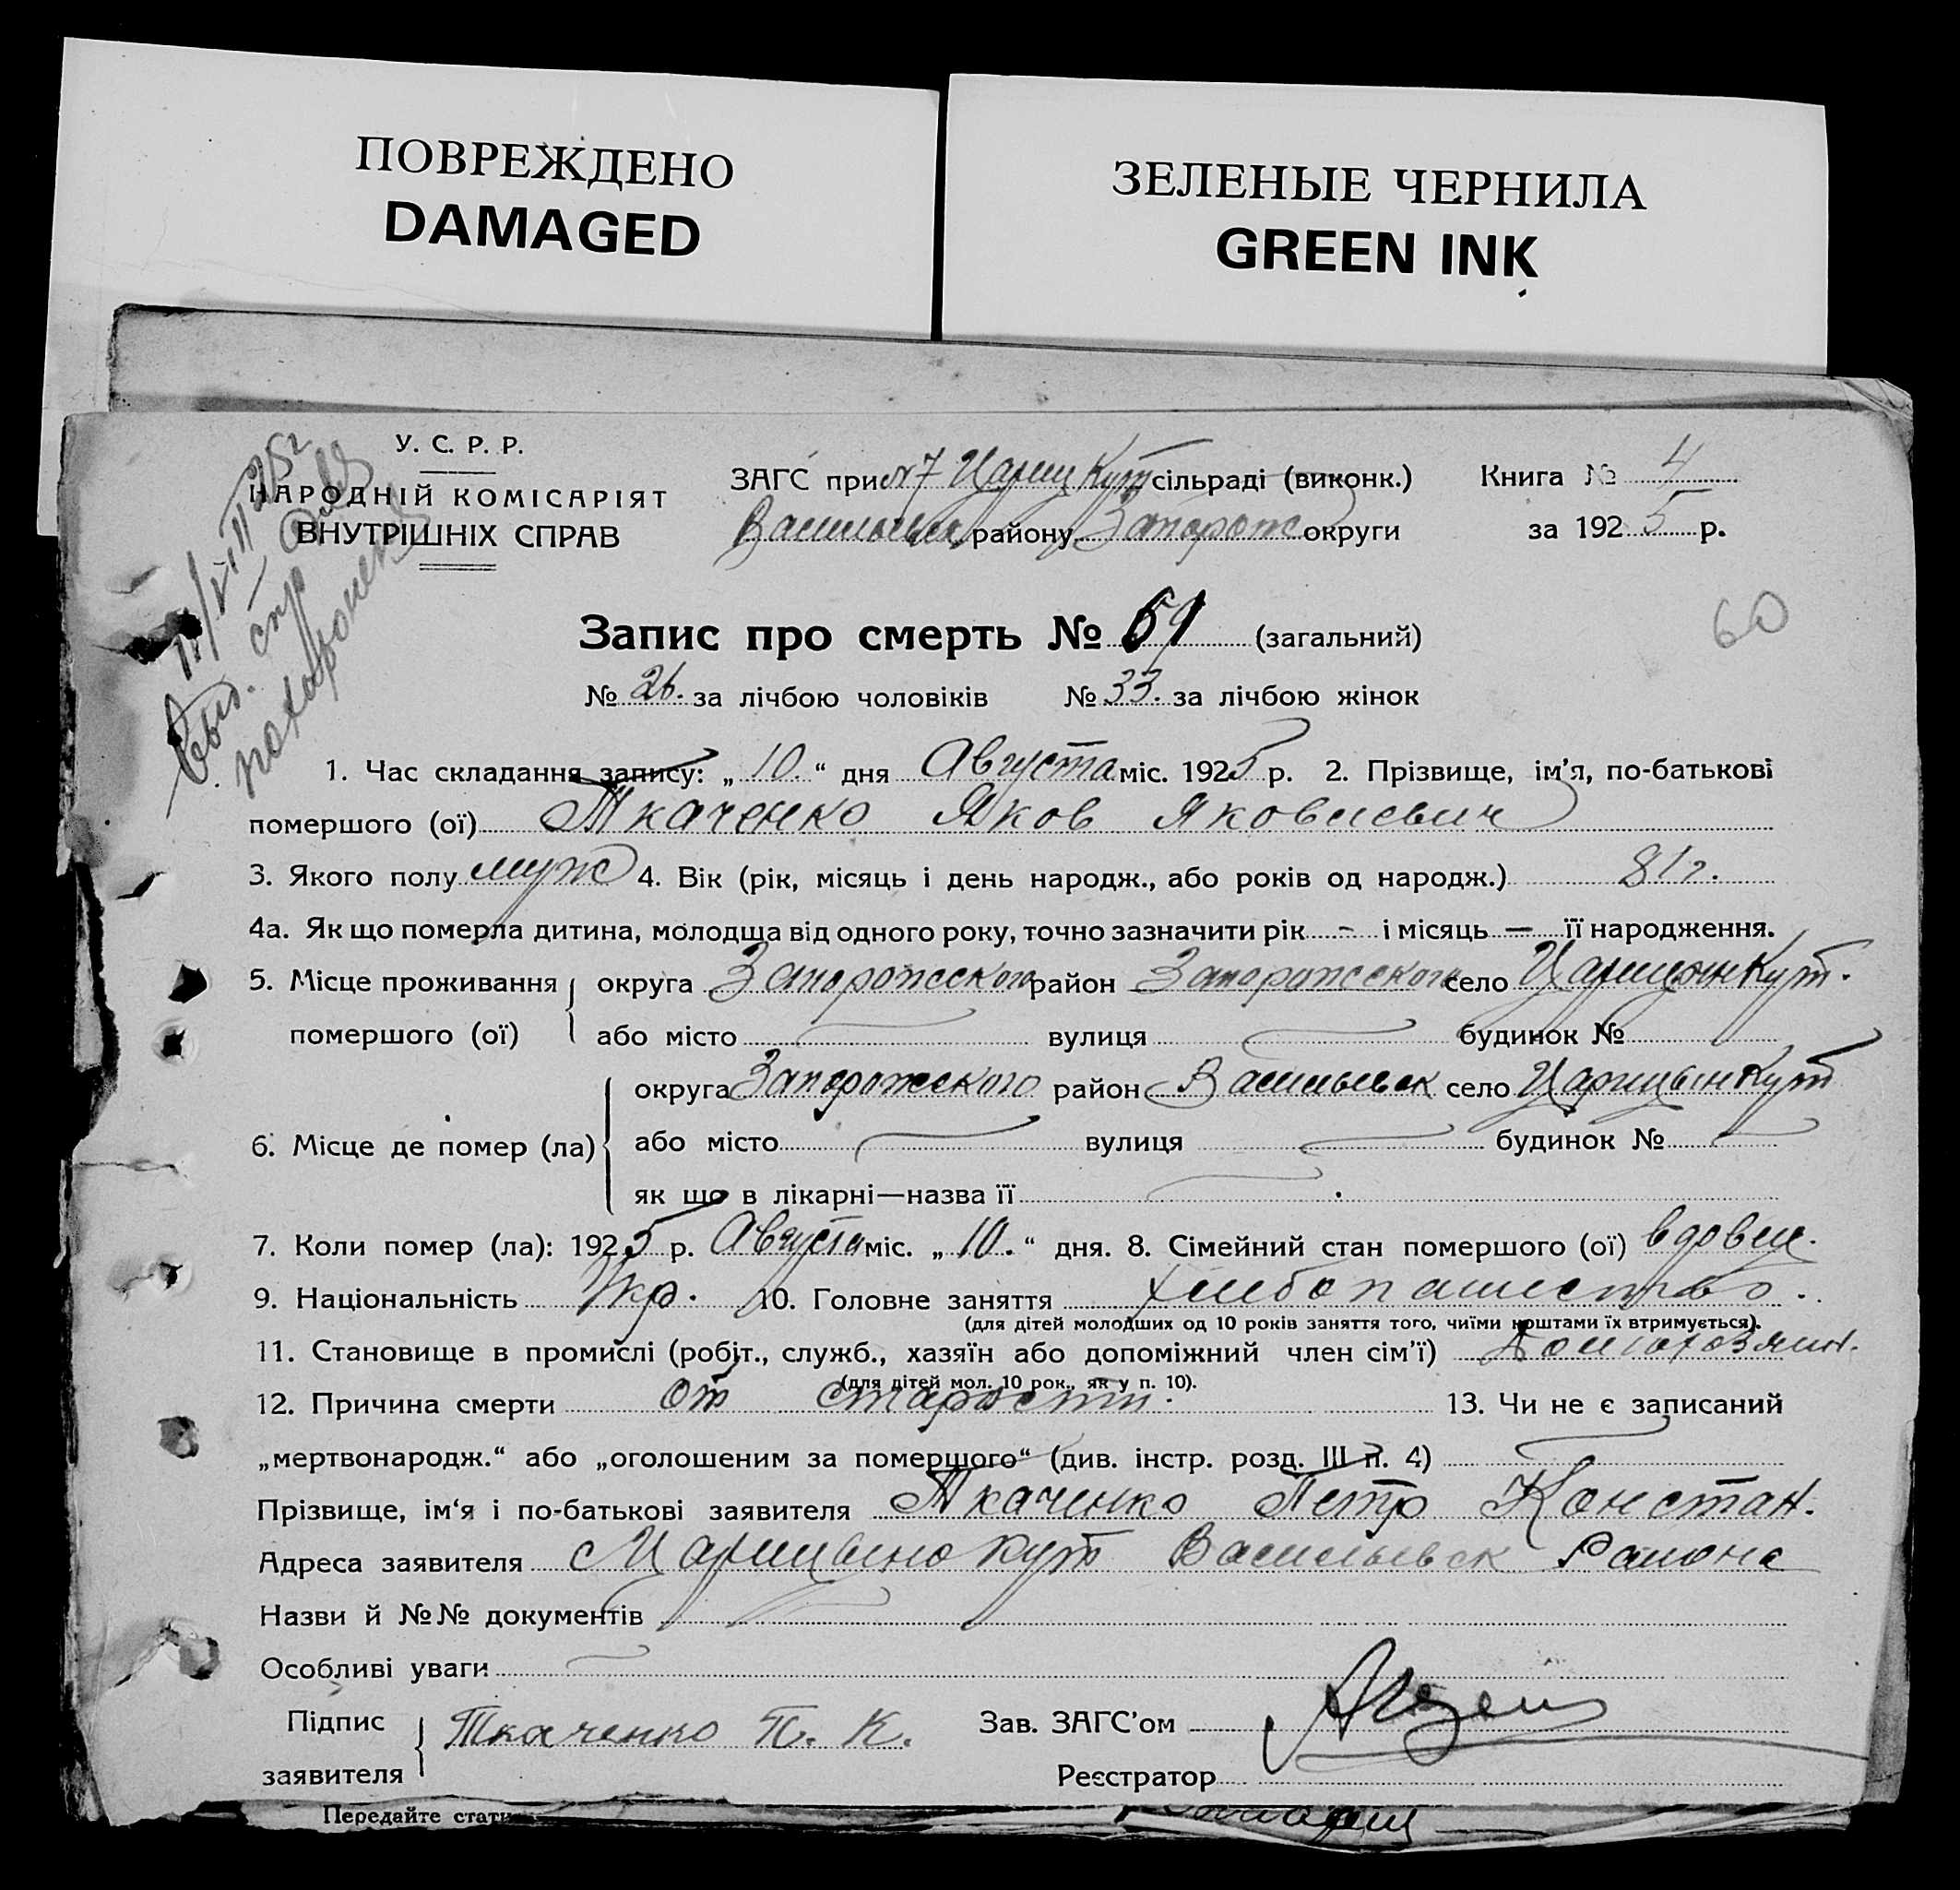 ПОВРЕЖДЕНО
DAMAGED
ЗЕЛЕНЫЕ ЧЕРНИЛА
GREEN INK
У. С. Р. Р.
НАРОДНІЙ КОМІСАРІЯТ
ВНУТРІШНІХ СПРАВ
ЗАГС при №7 Цариц Кут сільраді (виконк.)
Васильевск району Запорож округи
Книга № 4
за 1925 р.
похоронен
60
Запис про смерть № 59 (загальний)
№ 26. за лічбою чоловіків № 33. за лічбою жінок
1. Час складання запису: „ 10. “ дня Августа міс. 1925 р. 2. Прізвище, ім'я, по-батькові
помершого (ої) Ткаченко Яков Яковлевич
3. Якого полу муж 4. Вік (рік, місяць і день народж., або років од народж.) 81 г.
4а. Як що померла дитина, молодша від одного року, точно зазначити рік - і місяць — її народження.
5. Місце проживання помершого (ої) округа Запорожского район Запорожского село Царицын Кут.
або місто вулиця будинок №
6. Місце де помер (ла) округа Запорожского район Васильевск село Царицын Кут
або місто вулиця будинок №
як що в лікарні—назва її
7. Коли помер (ла): 1925 р. Августа міс. „ 10. “ дня. 8. Сімейний стан помершого (ої) вдовец.
9. Національність Укр. 10. Головне заняття хлебопашество.
(для дітей молодших од 10 років заняття того, чиїми коштами їх втримується).
11. Становище в промислі (робіт., служб., хазяїн або допоміжний член сім'ї) Домохозяин.
(для дітей мол. 10 рок., як у п. 10).
12. Причина смерти от старости. 13. Чи не є записаний
„мертвонародж.“ або „оголошеним за помершого“ (див. інстр. розд. III п. 4)
Прізвище, ім‘я і по-батькові заявителя Ткаченко Петр Констан.
Адреса заявителя с Царицыно Кут Васильевск Района
Назви й №№ документів
Особливі уваги
Підпис заявителя Ткаченко П. К.
Зав. ЗАГС'ом
Реєстратор
Передайте стати